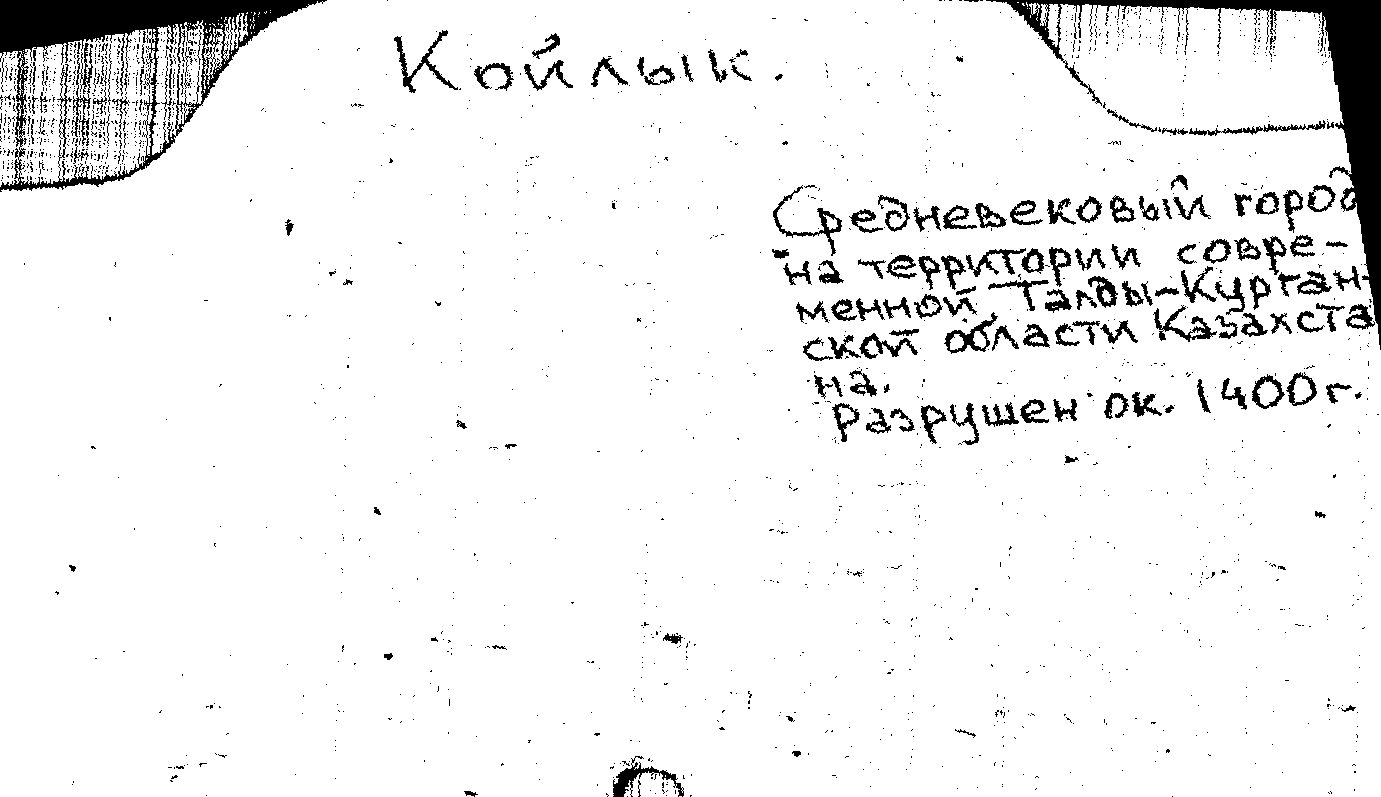 Койлык.
Средневековый город
на территории совре-
менной Талды-Курган-
ской области Казахста
на.
Разрушен ок. 1400г.